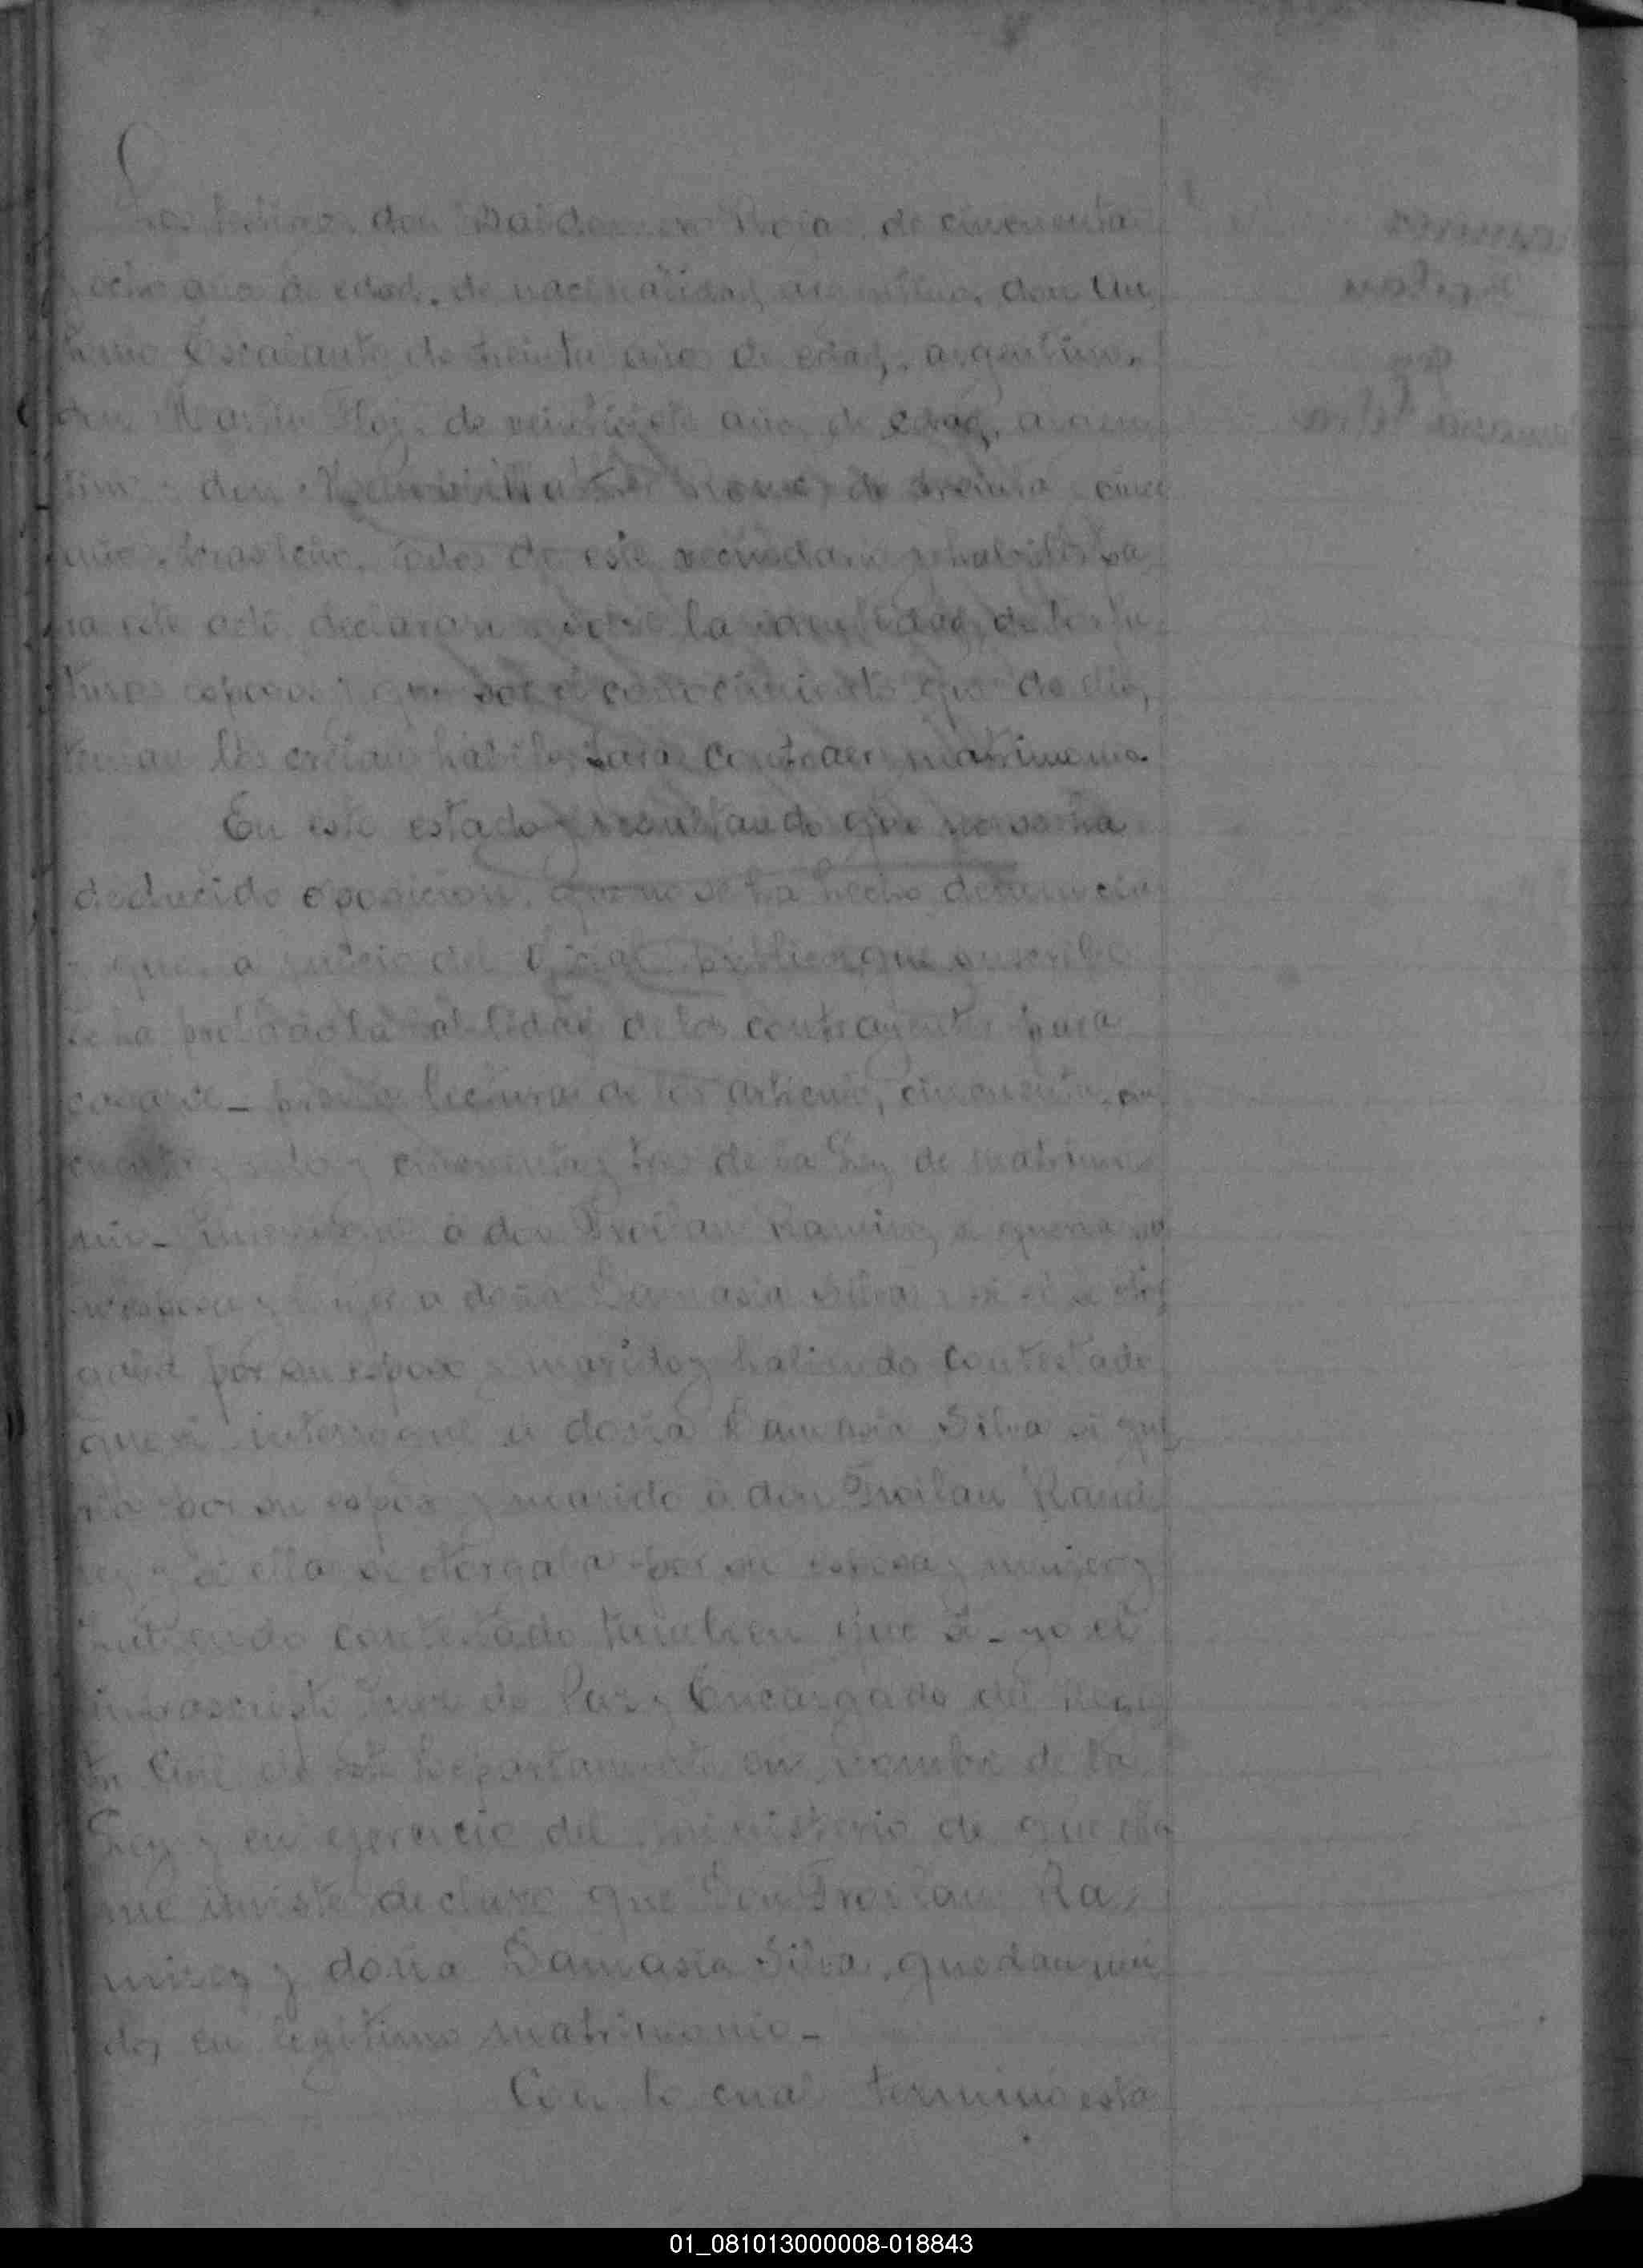 don de cincuenta
y ocho años de edad, de nacionalidad argentino, don An
tonio Escalante de treinta años de edad, argentino,
don Martin de años de edad, argen
tino y don de treinta y cinco
años, brasileño, todos de este vecindario y habiles pa
ra este acto, declararon sobre la identidad de los fu
turos esposos y que por el conocimiento que de ellos
tenian los creian habiles para contraer matrimonio.
En este estado y resultando que no se ha
deducido oposicion, que no se ha hecho denuncia
y que, a juicio del Oficial publico que suscribe
se ha probado la abilidad de los contrayentes para
casarse_ previa lectura de los articulos, cincuenta, cin
cuenta y cincuenta y tres de la Ley de matrimo
nio_ interrogué á don Froilan Ramirez si queria por
su esposa y mujer a doña Damasia Silva y si él se otor
gaba por su esposo y marido y habiendo contestado
que si interrogué a doña Damasia Silva si que
ria por su esposo y marido á don Froilan Rami
rez y si ella se otorgaba por su esposa y mujer y
habiendo contestado tambien que si_ yo el
infrascripto Juez de Paz y Encargado del Regis
tro Civil de este Departamento en nombre de la
Ley y en ejercicio del ministerio de que ella
me inviste declaro que Don Froilan Ra
mirez y doña Damasia Silva, quedan uni
dos en legitimo matrimonio_
Con lo cual terminó esta
01_081013000008-018843